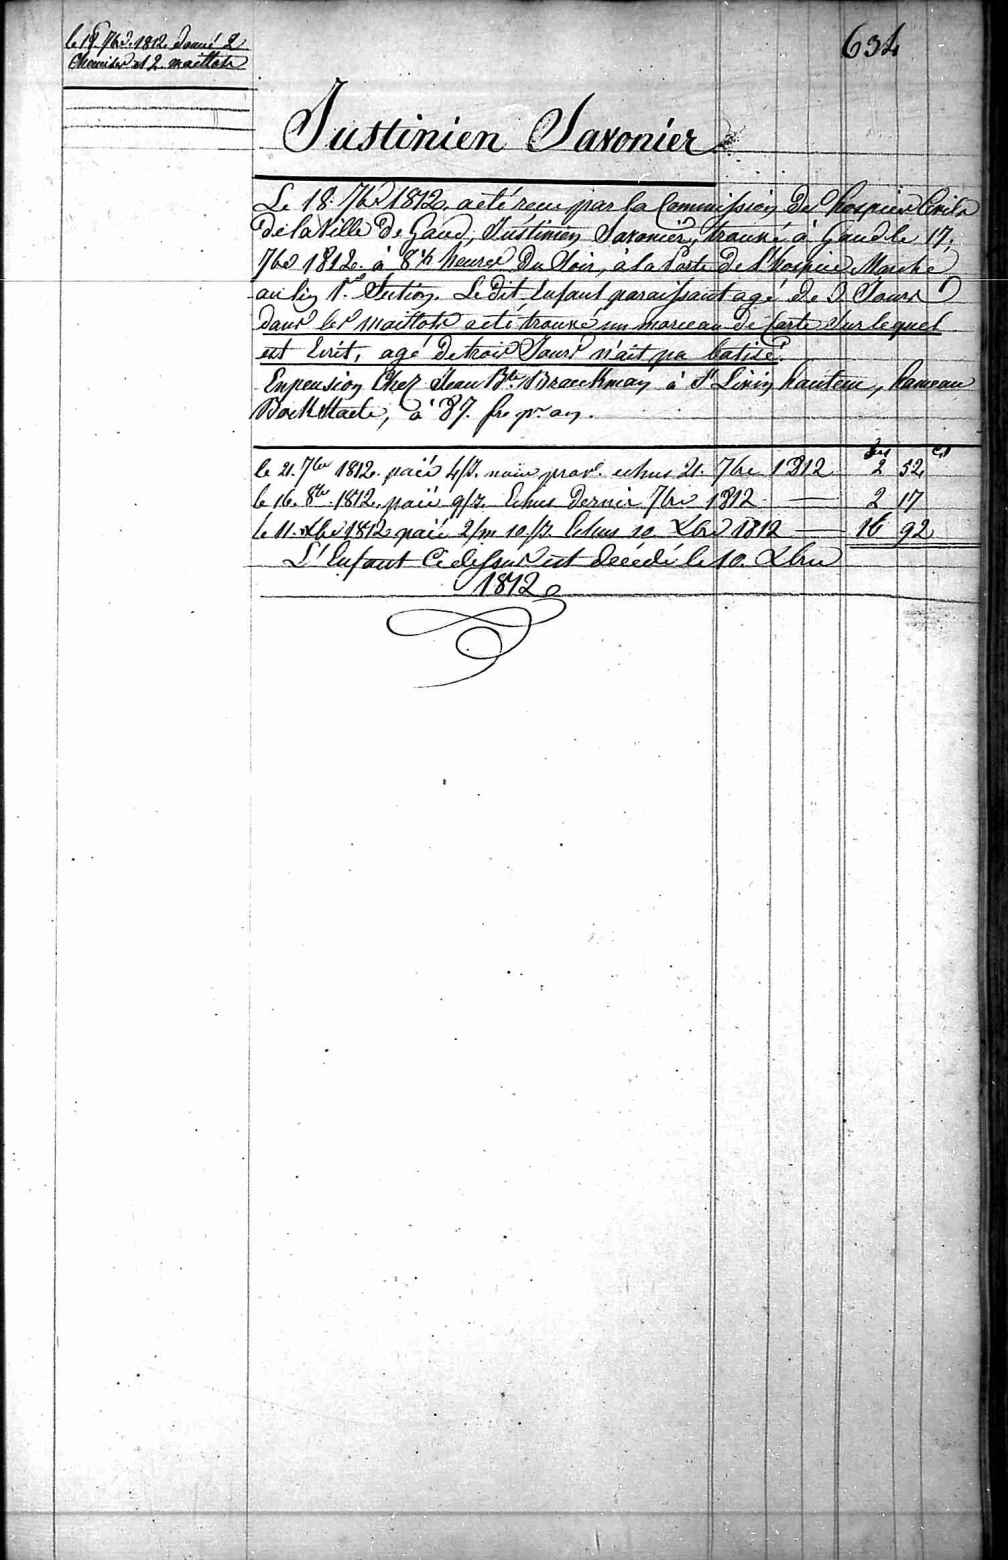 le 19 7bre 1812 donné 2
Chemises et 2 maillots
634
Justinien Savonier
Le 18. 7bre 1812, a été recu par la Commission des hospices Civils
de la Ville de Gand, Justinien Savonier, trouvé à Gand le 17.
7bre 1812 à 8½ heures du Soir, à la Porte de l'hospice, Marché
au lin 1re Section. Le dit Enfant paraissant agé de 3 Jours
dans les maillots a été trouvé un morceau de Carte Sur lequel
est Ecrit, agé de trois Jours n'ait pa batisé.
En pension Chez Jean Bte Braeckman à St Livin hautem, hameau
à 87. frs pr an.
frs Cs
le 21. 7bre 1812. paié echus 21. 7bre 1812 2 52
le 16. 8bre 1812. paié 9/J. Echus dernier 7bre 1812 — 2 17
le 11. Xbre 1812 paié 2/m 10/J. Echus 10 Xbre 1812 — 16 92
L'Enfant Ci dessus est décédé le 10. Xbre
1812